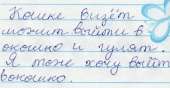 Кошке визёт
можит выйти в
окошко и гулят.
Я тоже хочу выйт
вокошко.